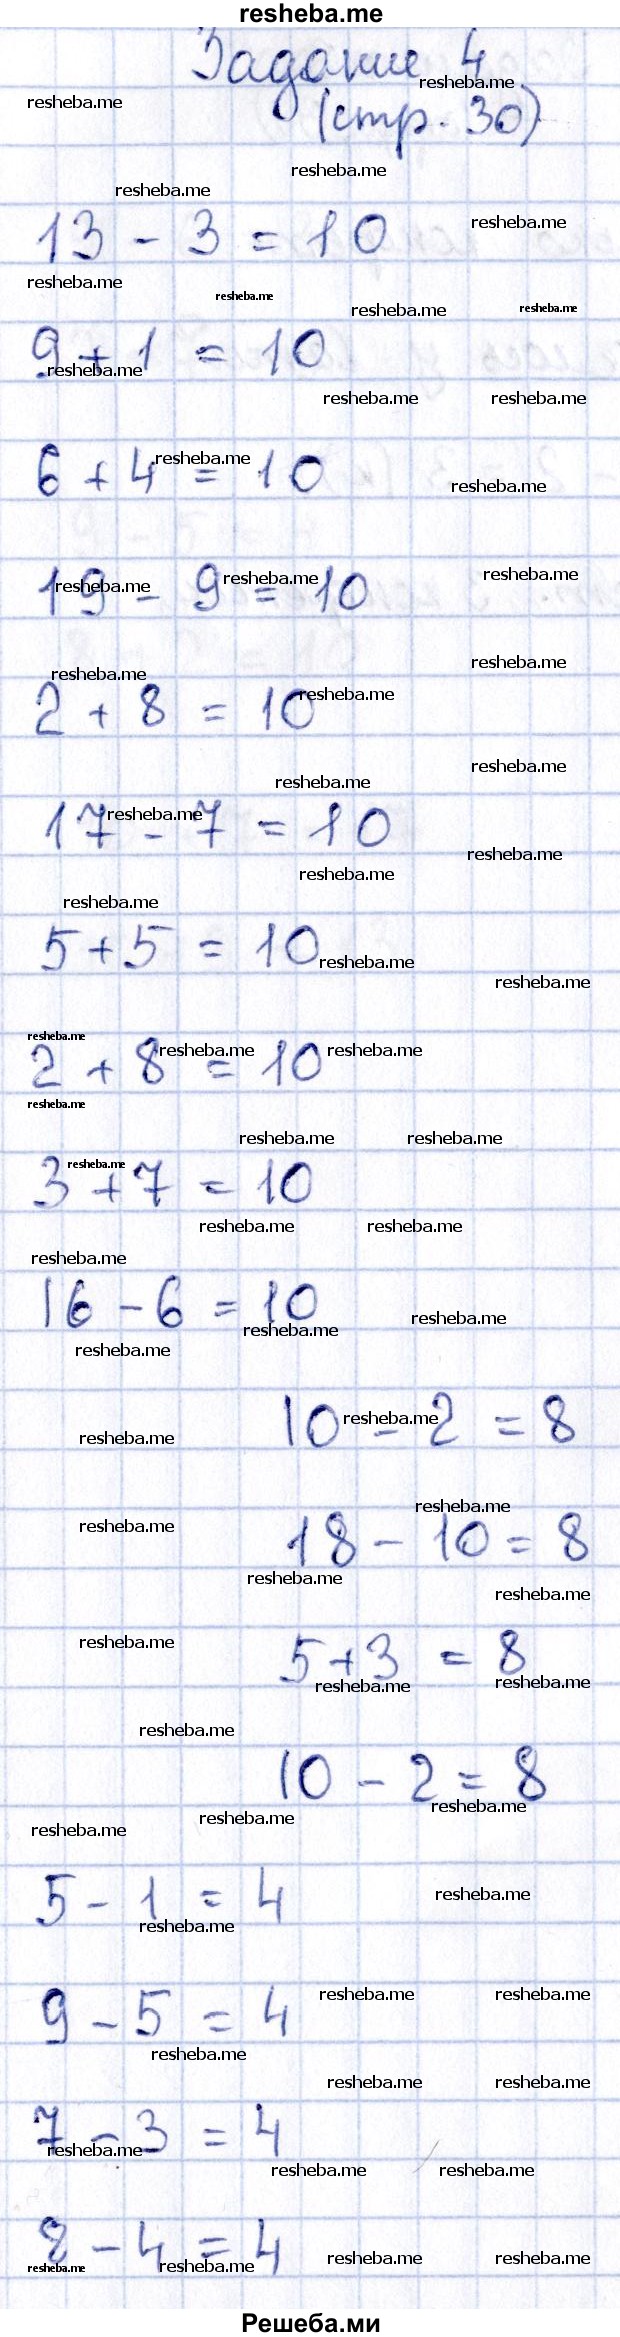 resheba.me
Задание 4
(стр. 30)
13 - 3 = 10
9 + 1 = 10
6 + 4 = 10
19 - 9 = 10
2 + 8 = 10
17 - 7 = 10
5 + 5 = 10
2 + 8 = 10
3 + 7 = 10
16 - 6 = 10
10 - 2 = 8
18 - 10 = 8
5 + 3 = 8
10 - 2 = 8
5 - 1 = 4
9 - 5 = 4
7 - 3 = 4
8 - 4 = 4
Решеба.ми